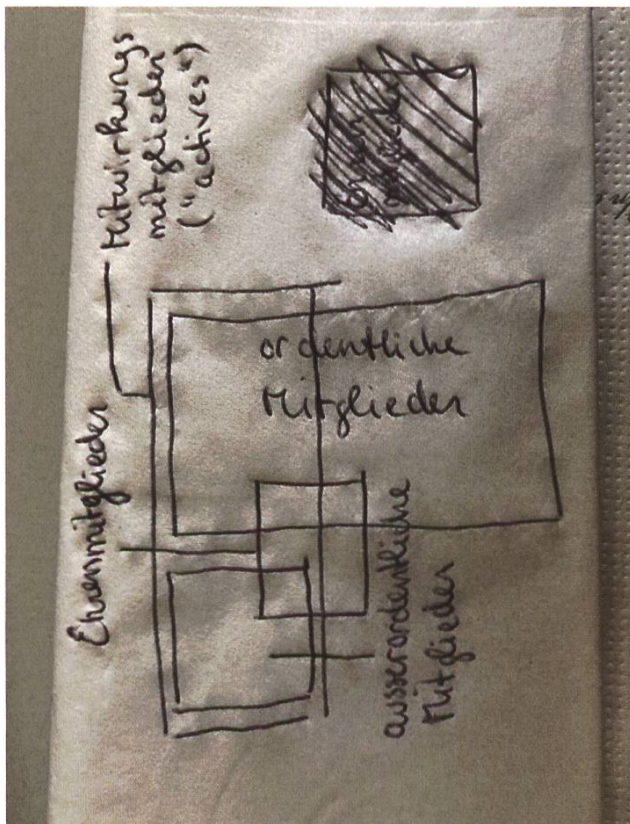 Mitwirkungs
mitglieder
("actives")
ordentliche
Mitglieder
Ehrenmitglieder
ausserordentliche
Mitglieder